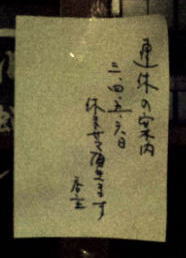 連休の案内
三、四、五、六日
休ませて頂きます
店主